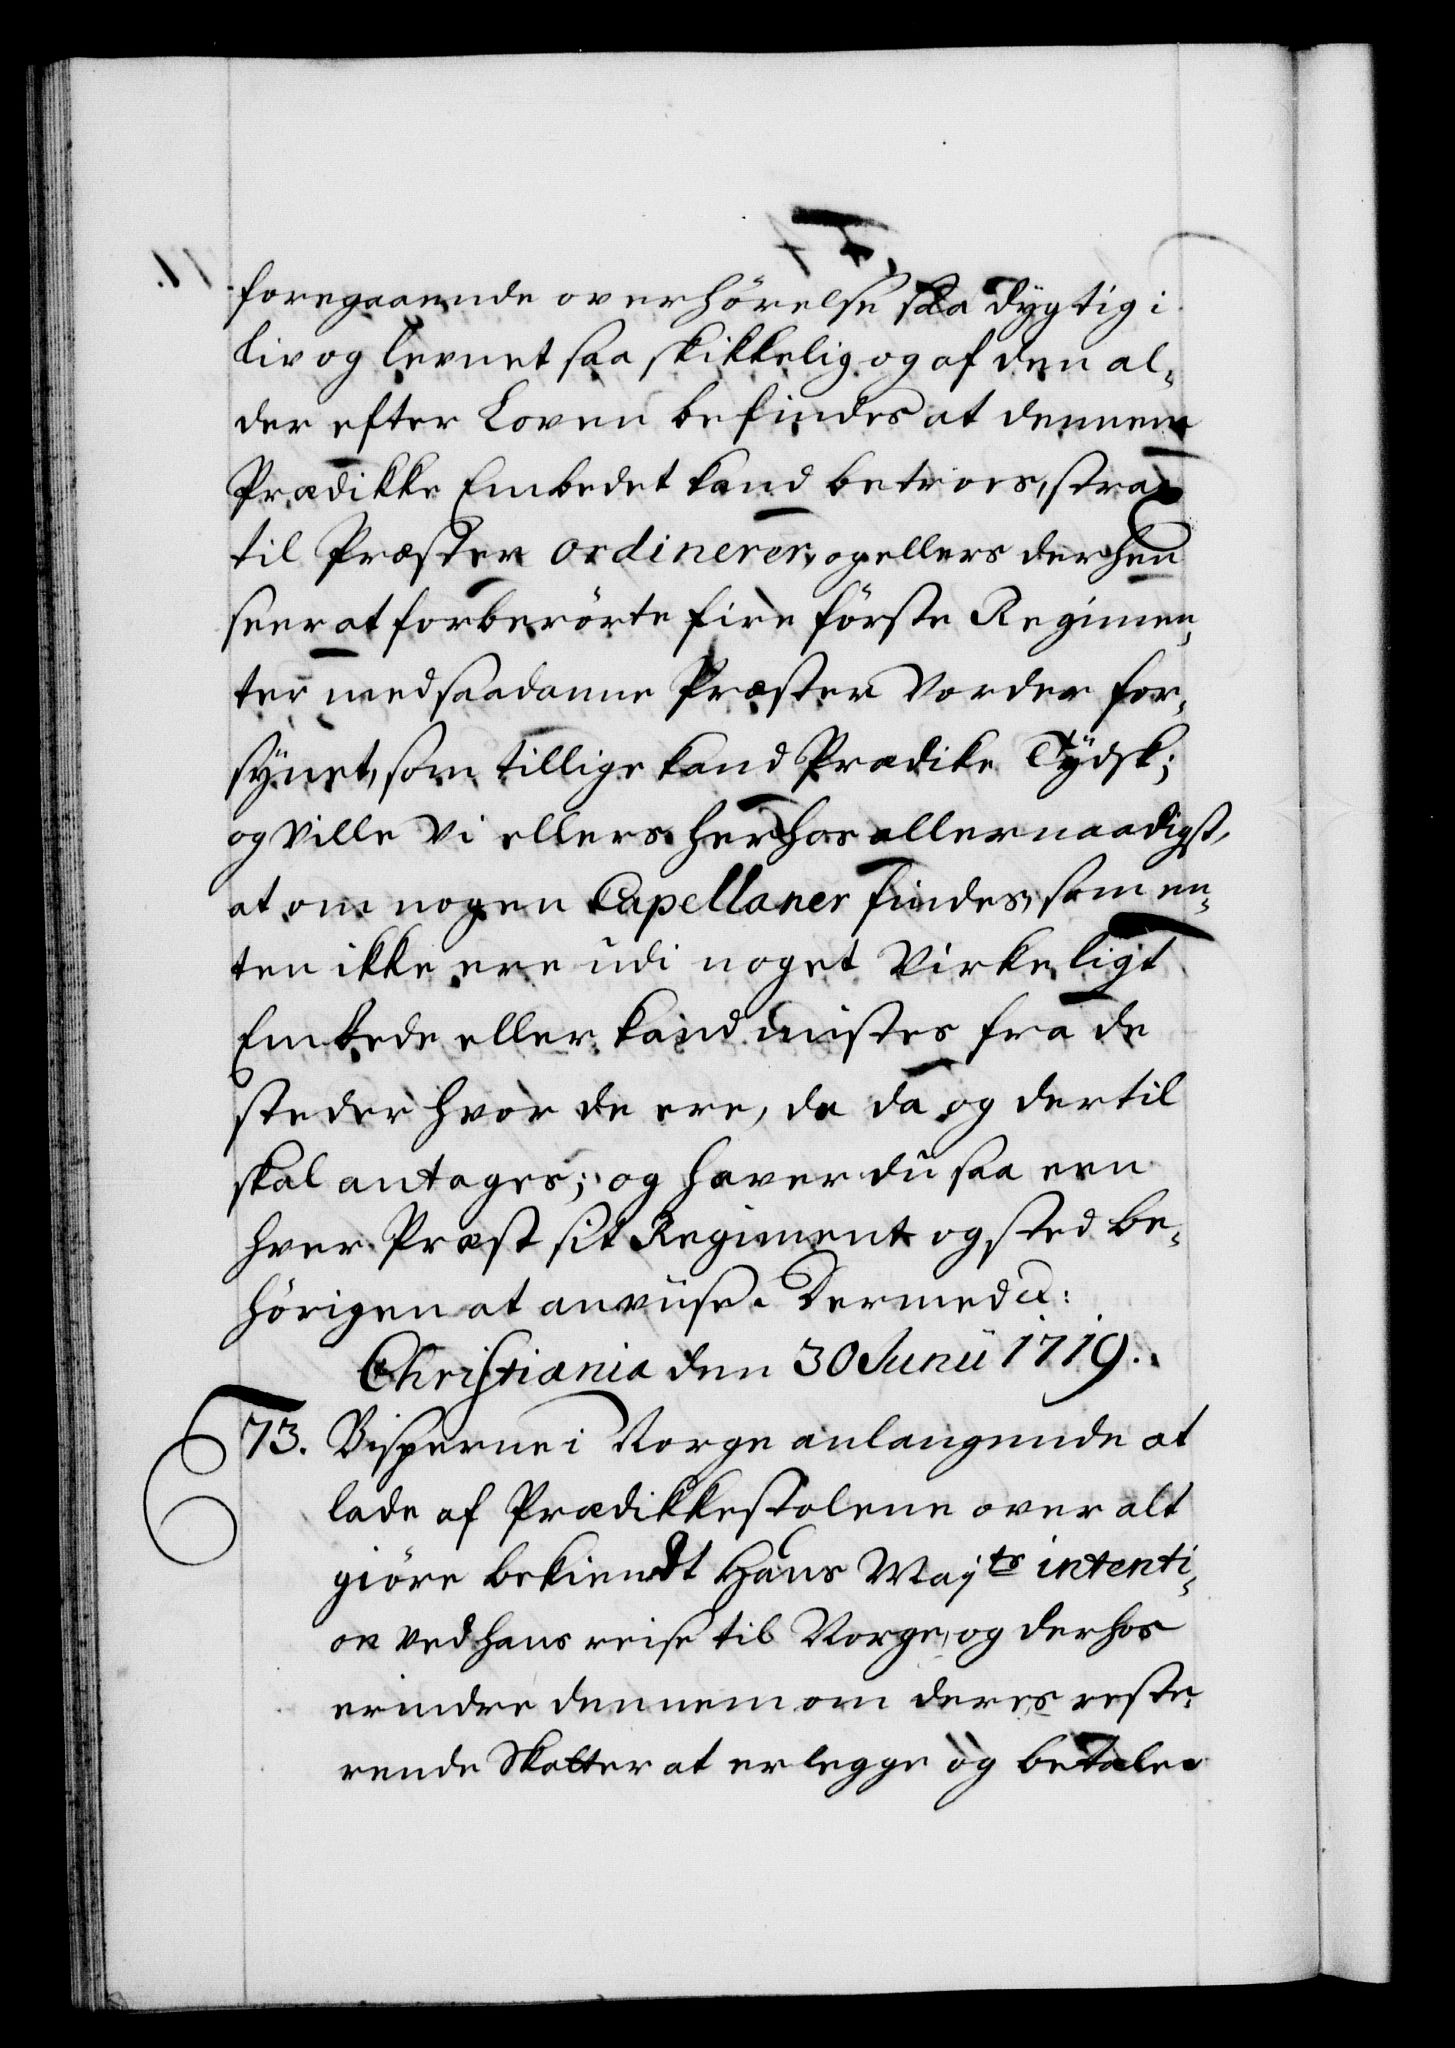 foregaaende overhörelse saa dygtig i
liv og levnet saa skikkelig og af den al-
der efter Loven befindes at dennem
Prædikke Embedet kand betroes, strax
til Præster ordinerer, og ellers derhen
seer at forberörte fire förste Regimen-
ter med saadanne Præster vorder for-
synet, som tillige kand Prædike Tydsk;
og ville vi ellers herhos allernaadigst,
at om nogen Capellaner findes, som en-
ten ikke ere udi noget virkeligt
Embede eller kand mistes fra de
steder hvor de ere, de da og dertil
skal antages; og haver du saa een
hver Præst sit Regiment og sted be-
hörigen at anviise. Dermed etc:
Christiania den 30 Junii 1719.
73. Bisperne i Norge anlangende at
lade af Prædikkestolene over alt
giöre bekiendt Hans Majts intenti-
on ved hans reise til Norge, og derhos
erindre dennem om deres reste-
rende Skatter at erlegge og betale.